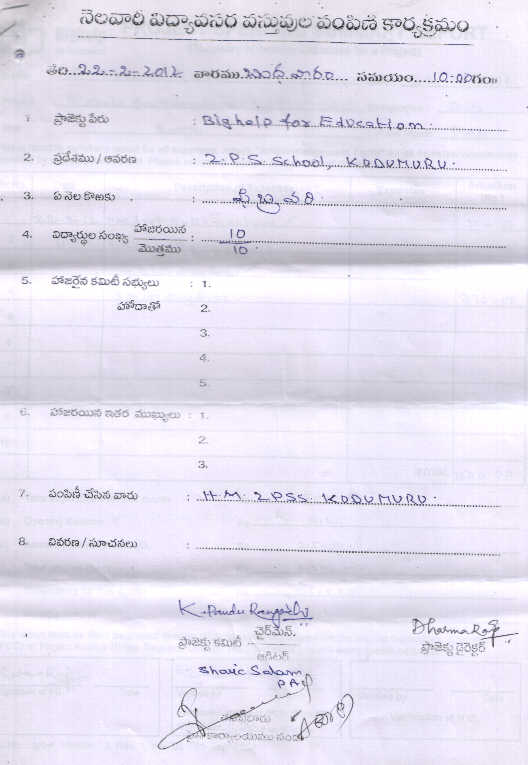 నెలవారి విద్యావసర వస్తువుల పంపిణి కార్యక్రమం
తేది..22-2-2012 వారము.బుధవారం... సమయం....10.00గం॥
1. ప్రాజెక్టు పేరు : Bighelp for Education.
2. ప్రదేశము / ఆవరణ : Z.P.S. School, KODUMURU.
3. ఏ నెల కొఱకు : ఫిబ్రవరి
4. విద్యార్థుల సంఖ్య హాజరయిన : 10
మొత్తము 10
5. హాజరైన కమిటీ సభ్యులు : 1.
హోదాతో 2.
3.
4.
5.
6. హాజరయిన ఇతర ముఖ్యులు : 1.
2.
3.
7. పంపిణీ చేసిన వారు : H.M. ZPSS. KODUMURU.
8. వివరణ / సూచనలు :
K. Pandu Rangadu
ప్రాజెక్టు కమిటీ చైర్‌మేన్.
ఆడిటర్
Dharma
ప్రాజెక్టు డైరెక్టర్
Shaic Salam
P.A